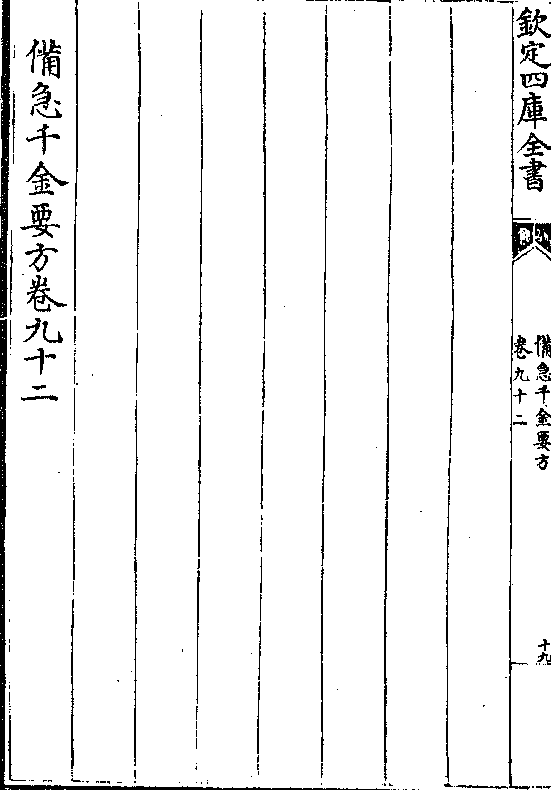 欽定四庫全書
備急千金要方
卷九十二
十九
備急千金要方卷九十二